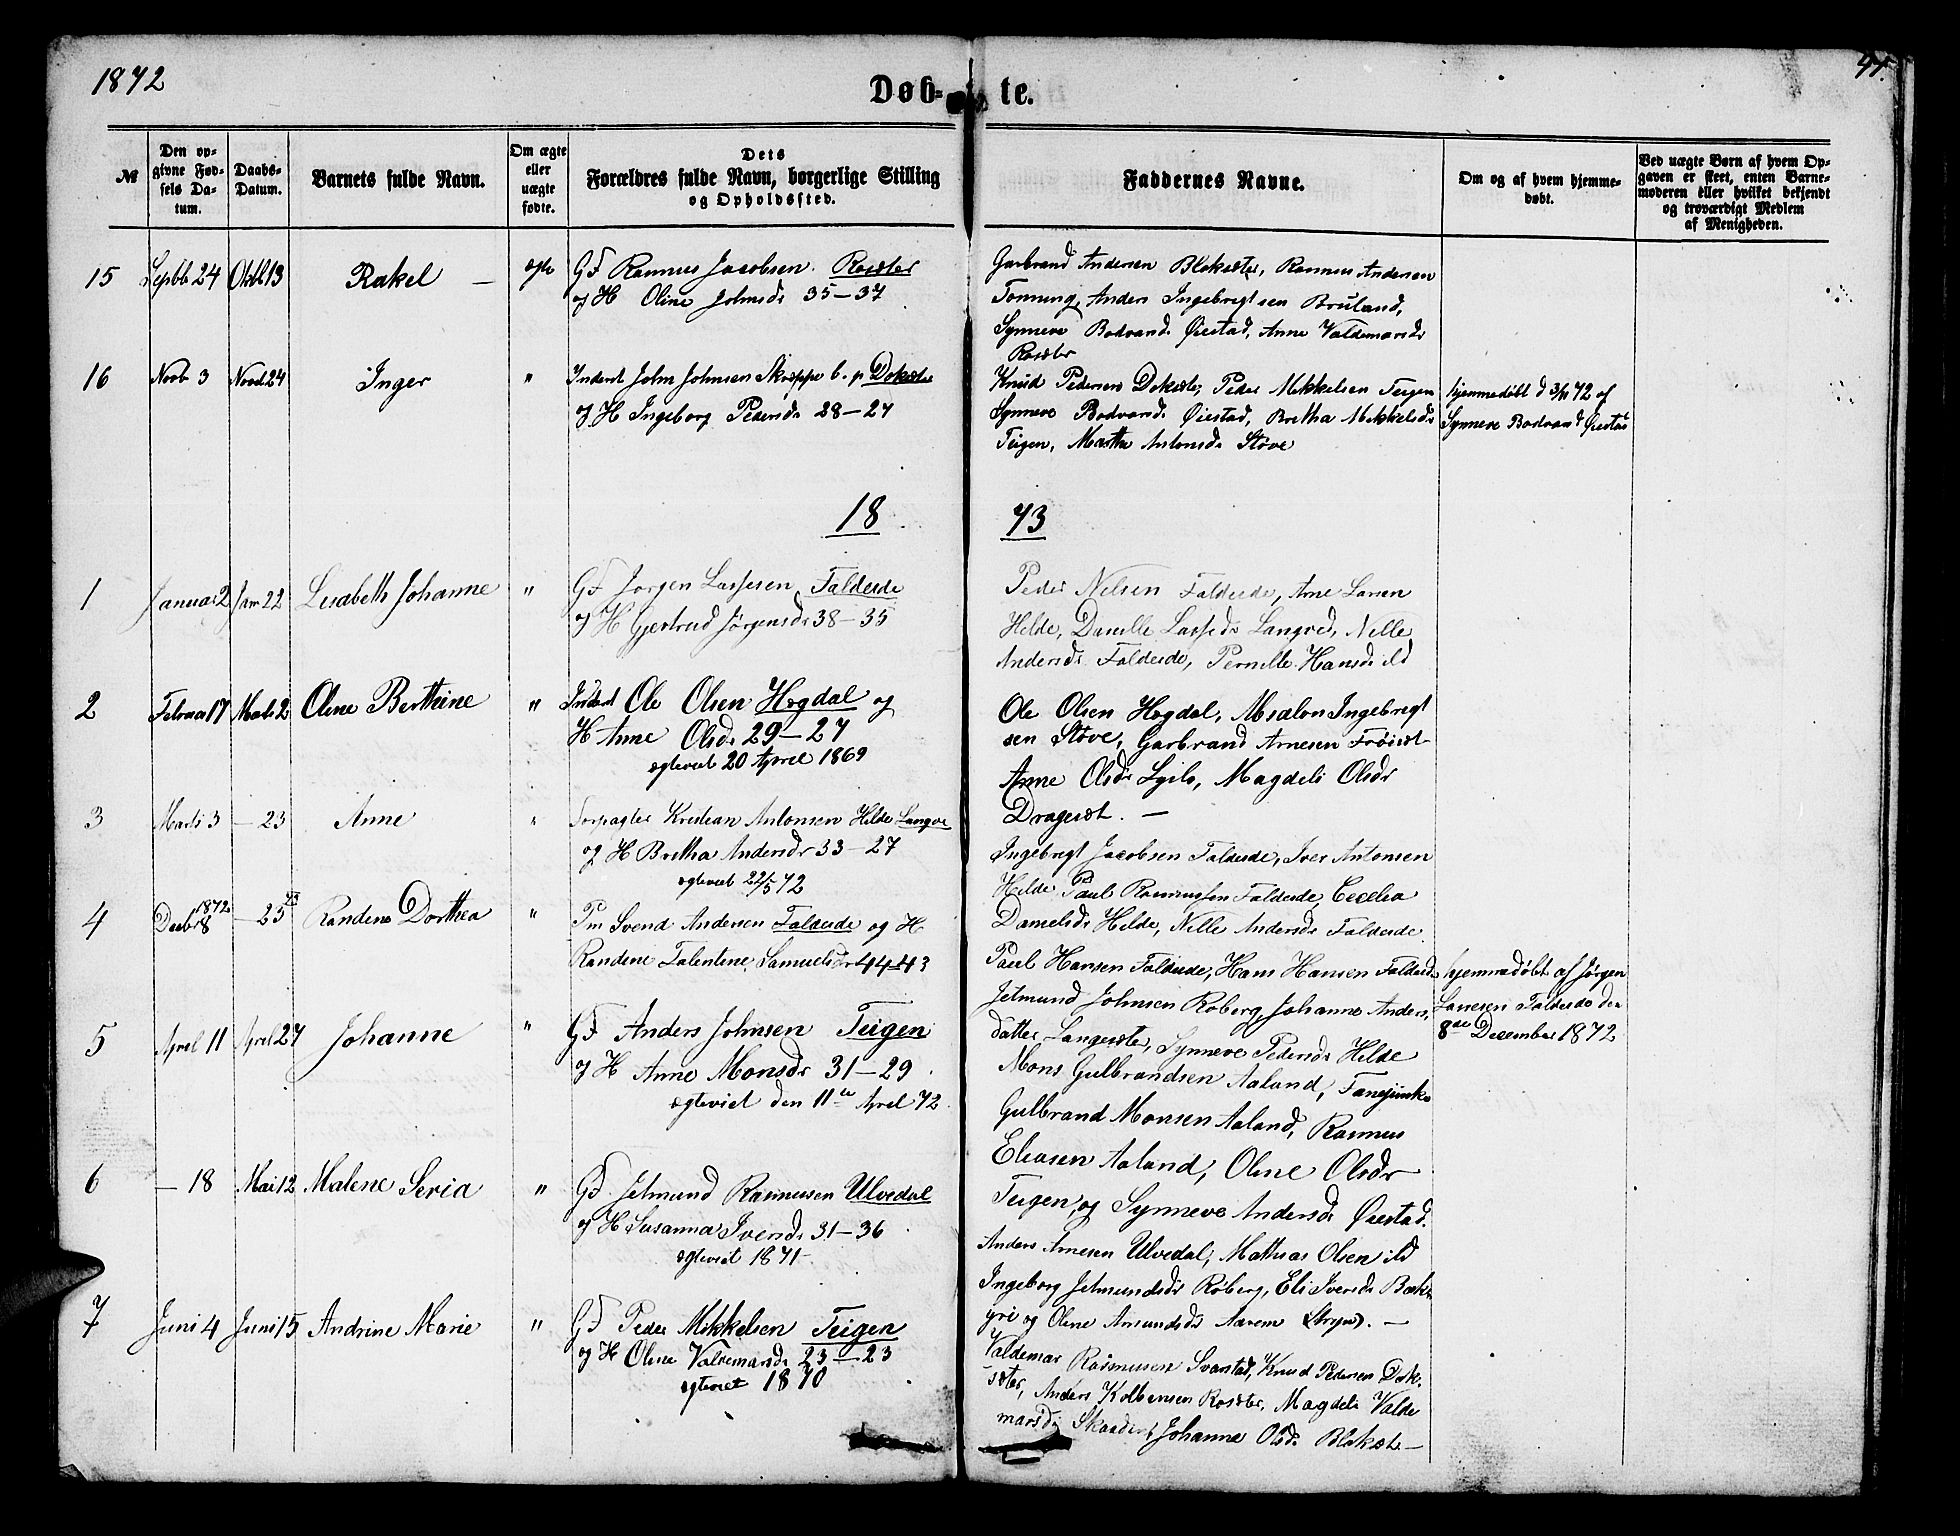 1872
Døb-
te.
47.
№
Den op-
givne Fød-
sels Da-
tum.
Daabs-
Datum.
Barnets fulde Navn.
Om ægte
eller
uægte
fødte.
Dets
Forældres fulde Navn, borgerlige Stilling
og Opholdssted.
Faddernes Navne.
Om og af hvem hjemme-
døbt.
Ved uægte Børn af hvem Op-
gaven er skeet, enten Barne-
moderen eller hvilket bekjendt
og troværdigt Medlem
af Menigheden.
15
Septbr 24
Oktbr 13
Rakel —
ægte
GF Rasmus Jacobsen Rosæter
og H Oline Johnsdr 35–37
Garbrand Andersen Bloksæter, Rasmus Andersen
Tonning, Anders Ingebregtsen Bruland,
Synneve Bodvarsd. Øiestad, Anne Valdemarsdr
Rosæter
16
Novb 3
Novb 24
Inger
"
Inderst John Johnsen Skreppe b. p Doksæter
og H Ingeborg Pedersdr 28–27
Knud Pedersen Doksæter, Peder Mikkelsen Teigen
Synneve Bodvarsd. Øiestad, Bretha Mikkelsdr
Teigen, Marthe Antonsdr Støve
hjemmedøbt d 3/11 72 af
Synneve Bodvarsd Øiestad
18
73
1
Januar 2
Jan 22
Lisabeth Johanne
"
GF Jørgen Lassesen Faldeide
og H Gjertrud Jørgensdr 38–35
Peder Nilsen Faldeide, Arne Larsen
Hilde, Danielle Lassedr Langved, Nille
Andersdr Faldeide, Pernille Hansdr ibd
2
Februar 17
Marts 2
Oline Berthine
"
Inderst Ole Olsen Hogdal og
H Anne Olsdr 29–27
ægteviet 20 April 1869
Ole Olsen Hogdal, Absalon Ingebregt
sen Støve, Garbrand Arnesen Frøiset
Anne Olsdr Lyils, Magdeli Olsdr
Drageset. —
3
Marts 3
— 23
Anne
"
Forpagter Kristian Antonsen Hilde Langve
og H Bretha Andersdr 33–27
ægteviet 22/5 72
Ingebregt Jacobsen Faldeide, Iver Antonsen
Hilde, Paul Rasmussen Faldeide, Cecelia
Danielsdr Hilde, Nille Andersdr Faldeide.
4
1872
Decbr 8
— 25
Randine Dorthea
"
Pm Svend Andersen Faldeide og H
Randine Talentine Samuelsdr 44–43
Paul Hansen Faldeide, Hans Hansen Faldeide
Jetmund Johnsen Roberg, Johanne Anders-
datter Langesæter, Synneve Pedersdr Hilde
hjemmedøbt af Jørgen
Lassesen Faldeide den
8de December 1872
5
April 11
April 27
Johanne
"
GF Anders Johnsen Teigen
og H Anne Monsdr 31–29
ægteviet den 11te April 72
Mons Gulbrandsen Aaland, Fanejunker
Gulbrand Monsen Aaland, Rasmus
Eliasen Aaland, Oline Olsdr
Teigen, og Synneve Andersdr Øiestad.
6
— 18
Mai 12
Malene Seria
"
GF. Jetmund Rasmussen Ulvedal
og H Susanna Iversdr 31–36
ægteviet 1871
Anders Arnesen Ulvedal, Mathias Olsen ibd
Ingeborg Jetmundsdr Roberg, Eli Iversdr Bak-
gri og Oline Amundsdr Aarem (Stryn). —
7
Juni 4
Juni 15
Andrine Marie
"
GF Peder Mikkelsen Teigen
og H Oline Valdemarsdr 23–23
ægteviet 1870
Valdemar Rasmussen Svarstad, Knud Pedersen Dok-
sæter, Anders Kolbensen Rosæter, Magdeli Valde
marsdr Skaaden, Johanne Olsdr Bloksæt—